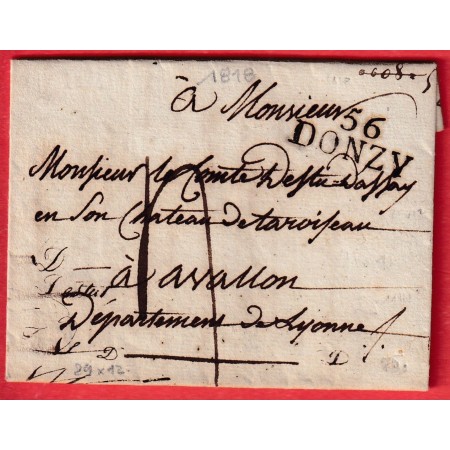 1818
à Monsieur
56
DONZY
Monsieur le Comte Destu Dassay
en Son Chateau de taroiseau
à avallon
Département de Lyonne
D D
29 x 12